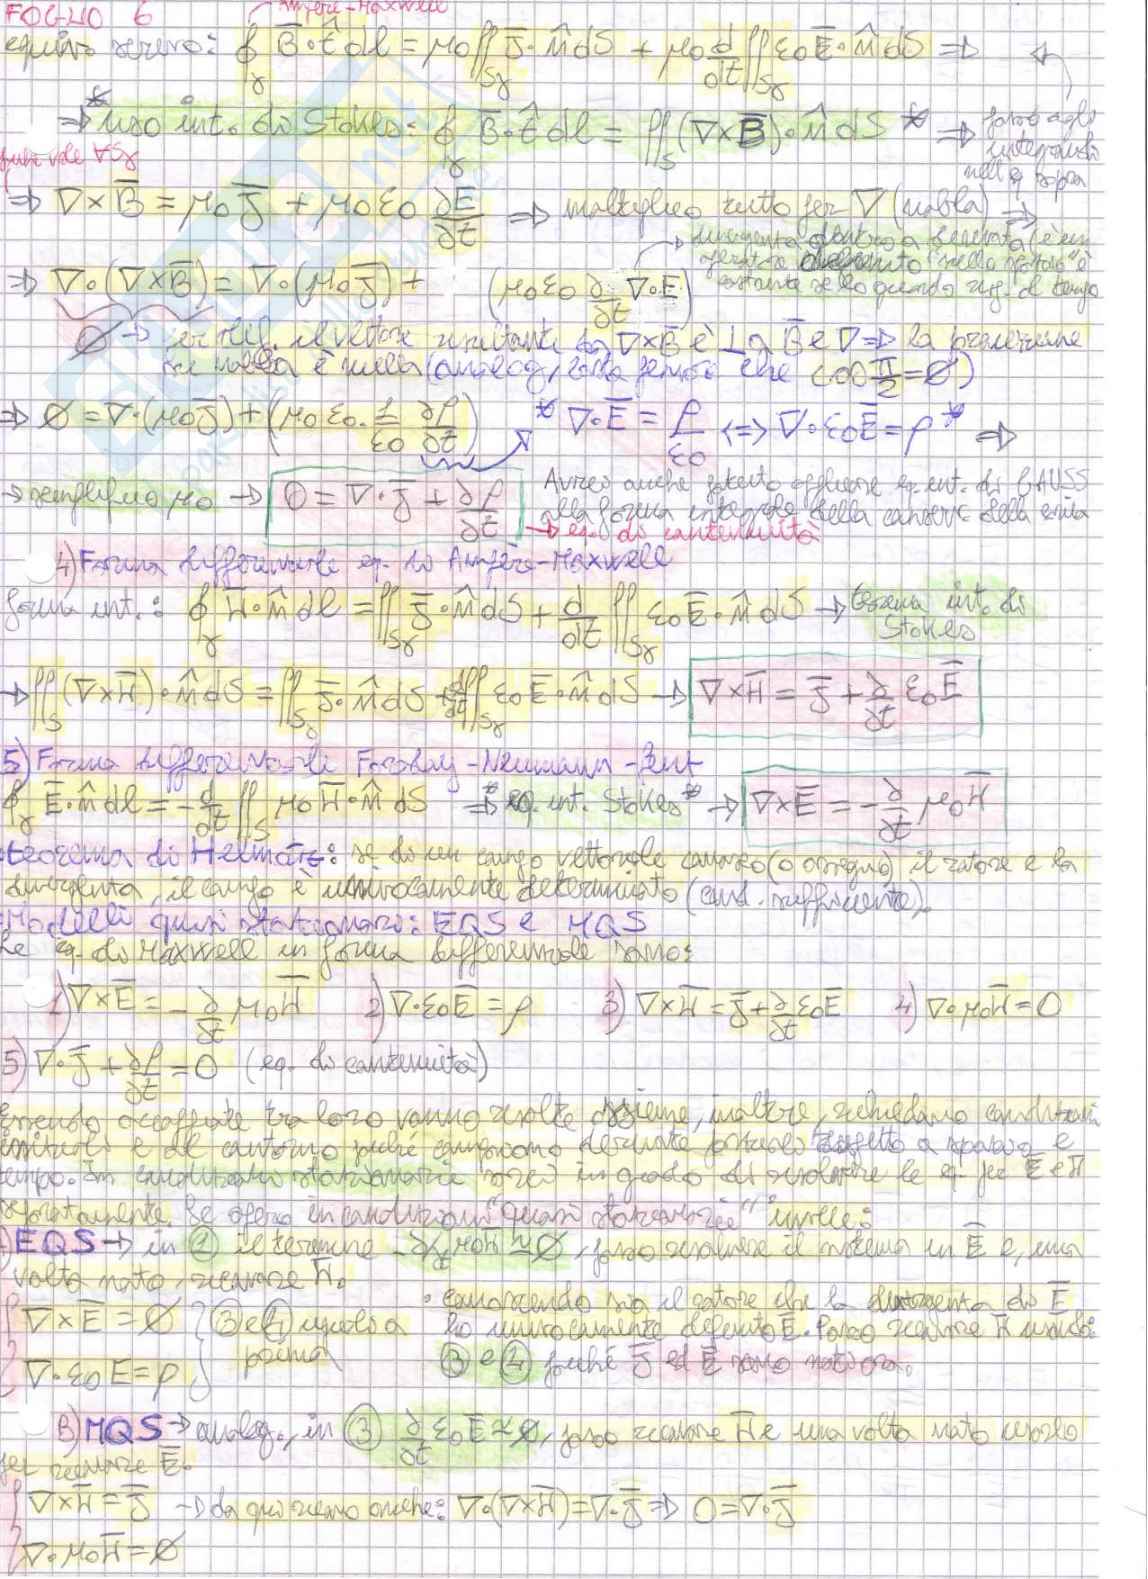 FOGLIO 6
Ampère-Maxwell
∮γ B̄·t̂ dl = μ0∬Sγ J̄·n̂ dS + μ0 d/dt ∬Sγ ε0 Ē·n̂ dS ⇒
⇒ *uso int. di Stokes: ∮γ B̄·t̂ dl = ∬S (∇×B̄)·n̂ dS * ⇒
⇒ ∇×B̄ = μ0 J̄ + μ0 ε0 ∂Ē/∂t ⇒ moltiplico tutto per ∇ (nabla) ⇒
⇒ ∇·(∇×B̄) = ∇·(μ0 J̄) + (μ0 ε0 ∂/∂t ∇·Ē)
∅ → per def. il vettore risultante da ∇×B̄ è ⊥ a B̄ e ∇ ⇒ la proiezione
è nulla (analog. che cos π/2 = ∅)
⇒ ∅ = ∇·(μ0 J̄) + (μ0 ε0 · 1/ε0 ∂ρ/∂t) * ∇·Ē = ρ/ε0 ⇔ ∇·ε0Ē = ρ * ⇒
→ semplifico μ0 → 0 = ∇·J̄ + ∂ρ/∂t
Avrei anche potuto applicare eq. int. di GAUSS
alla forma integrale della conserv. della carica
→ eq. di continuità
4) Forma differenziale eq. di Ampère-Maxwell
forma int.: ∮γ H̄·n̂ dl = ∬Sγ J̄·n̂ dS + d/dt ∬Sγ ε0 Ē·n̂ dS → teorema int. di
Stokes
→ ∬S (∇×H̄)·n̂ dS = ∬Sγ J̄·n̂ dS + d/dt ∬Sγ ε0 Ē·n̂ dS → ∇×H̄ = J̄ + ∂/∂t ε0 Ē
5) Forma differenziale Faraday-Neumann-Lenz
∮γ Ē·n̂ dl = - d/dt ∬S μ0 H̄·n̂ dS ⇒ * eq. int. Stokes * → ∇×Ē = - ∂/∂t μ0 H̄
teorema di Helmotz: se di un campo vettoriale conosco (o assegno) il rotore e la
divergenza, il campo è univocamente determinato (cond. sufficiente).
Modelli quasi stazionari: EQS e MQS
Le eq. di Maxwell in forma differenziale sono:
1) ∇×Ē = - ∂/∂t μ0 H̄ 2) ∇·ε0Ē = ρ 3) ∇×H̄ = J̄ + ∂/∂t ε0Ē 4) ∇·μ0H̄ = 0
5) ∇·J̄ + ∂ρ/∂t = 0 (eq. di continuità)
Essendo accoppiate tra loro vanno risolte assieme, inoltre, richiedono condizioni
iniziali e al contorno perché compaiono derivate parziali rispetto a spazio e
tempo. In condizioni stazionarie sarei in grado di risolvere le eq. per Ē e H̄
separatamente. Se opero in condizioni "quasi stazionarie" invece:
A) EQS → in ① il termine - ∂/∂t μ0H̄ ≈ ∅, posso risolvere il sistema in Ē e, una
volta noto, ricavare H̄.
∇×Ē = ∅
∇·ε0E = ρ
③ e ④ uguali a
prima
· conoscendo sia il rotore che la divergenza di Ē
ho univocamente definito Ē. Posso ricavare H̄ usando
③ e ④ perché J̄ ed Ē sono noti ora.
B) MQS → analog., in ③ ∂/∂t ε0Ē ≈ ∅, posso ricavare H̄ e una volta noto usarlo
per ricavare Ē.
∇×H̄ = J̄ → da qui ricavo anche: ∇·(∇×H̄) = ∇·J̄ ⇒ 0 = ∇·J̄
∇·μ0H̄ = ∅